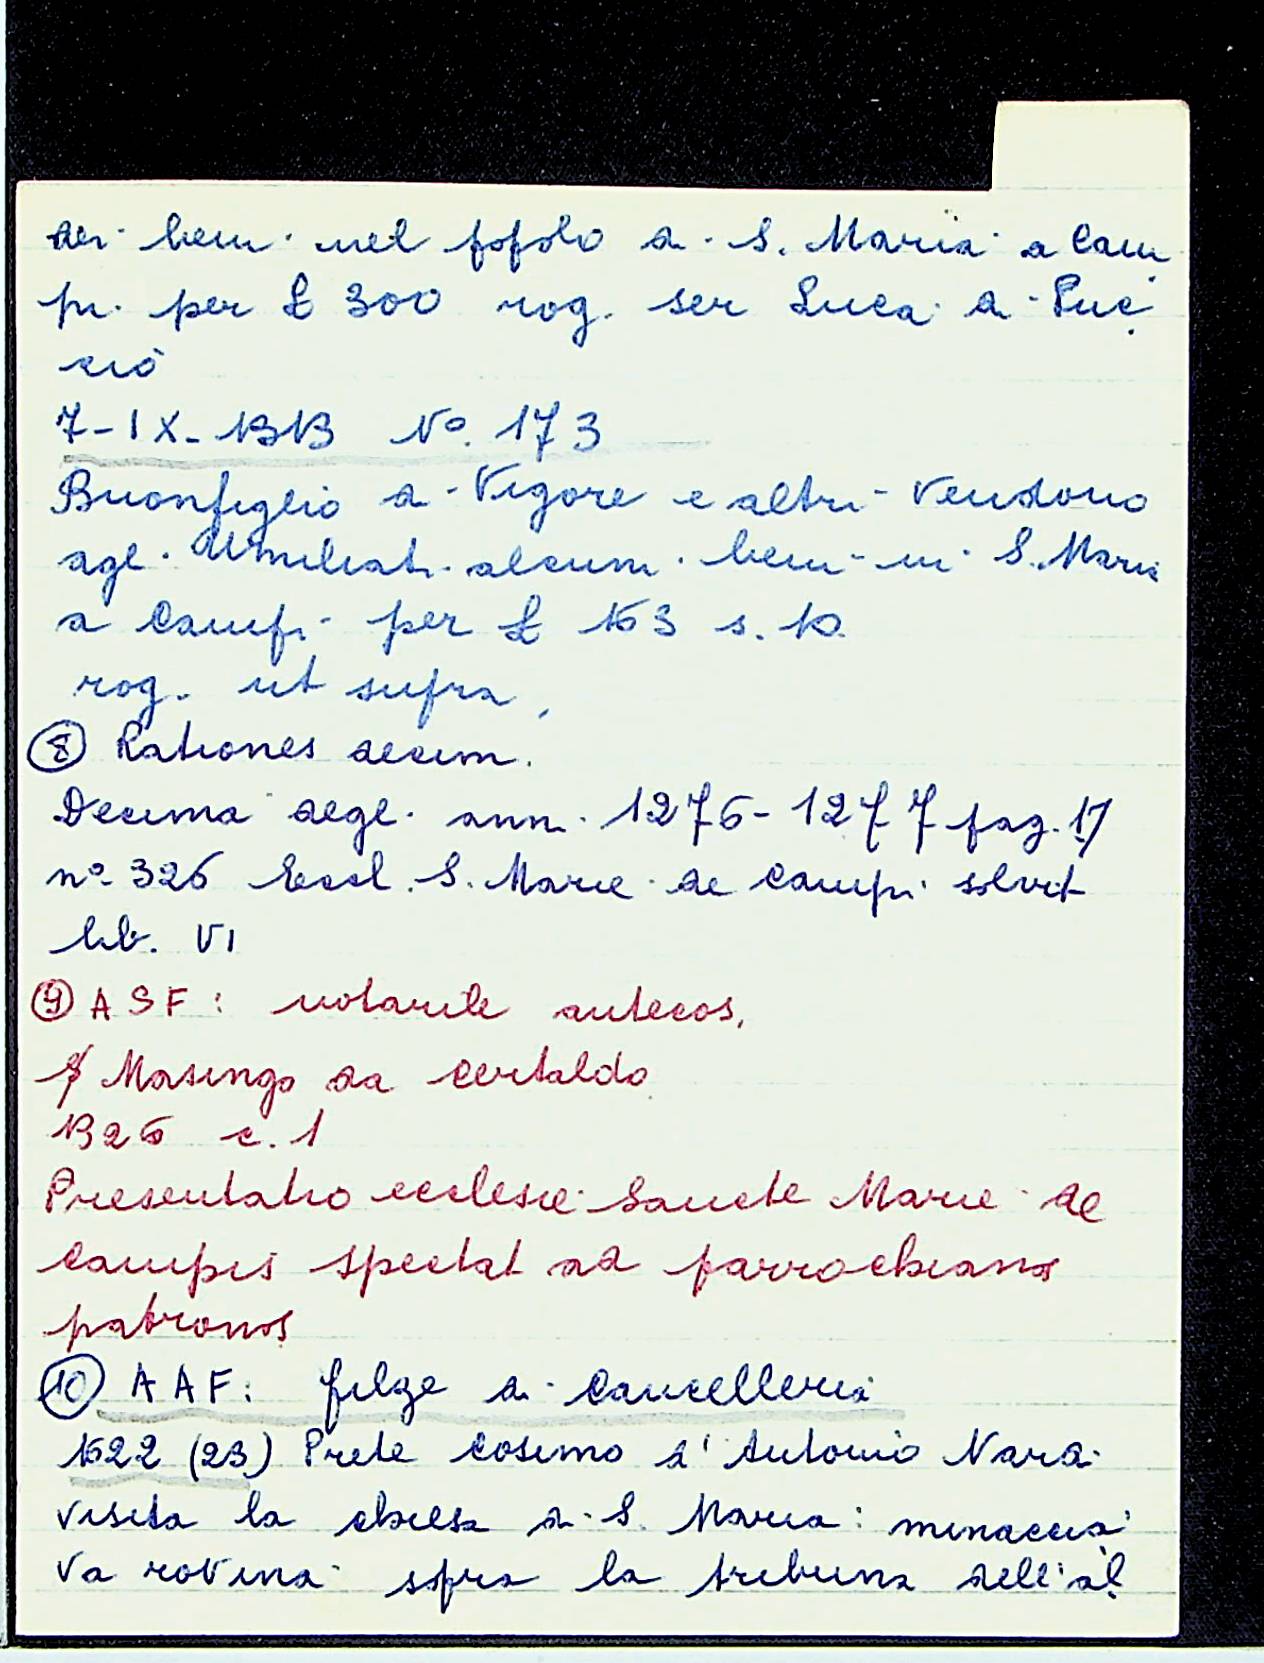 dei beni nel popolo di S. Maria a Cam
pi per £ 300 rog. ser Luca di Puc
ciò
7-IX-1313 N°. 173
Buonfiglio di Vigore e altri vendono
agl. Umiliati alcuni beni in S. Maria
a Campi per £ 163 s. 10
rog. ut supra,
⑧ Rationes decim.
Decima degl. ann. 1276-1277 pag. 17
n° 326 Eccl. S. Marie de Campi solvit
lib. VI
⑨ ASF: notarile antecos,
S/ Masingo da Certaldo
1326 c. 1
Presentatio ecclesie Sancte Marie de
Campis spectat ad parrochianos
patronos
⑩ AAF: filze di Cancelleria
1622 (23) Prete Cosimo d'Antonio Nardi
visita la chiesa di S. Maria: minaccia
va rovina sopra la tribuna dell'al